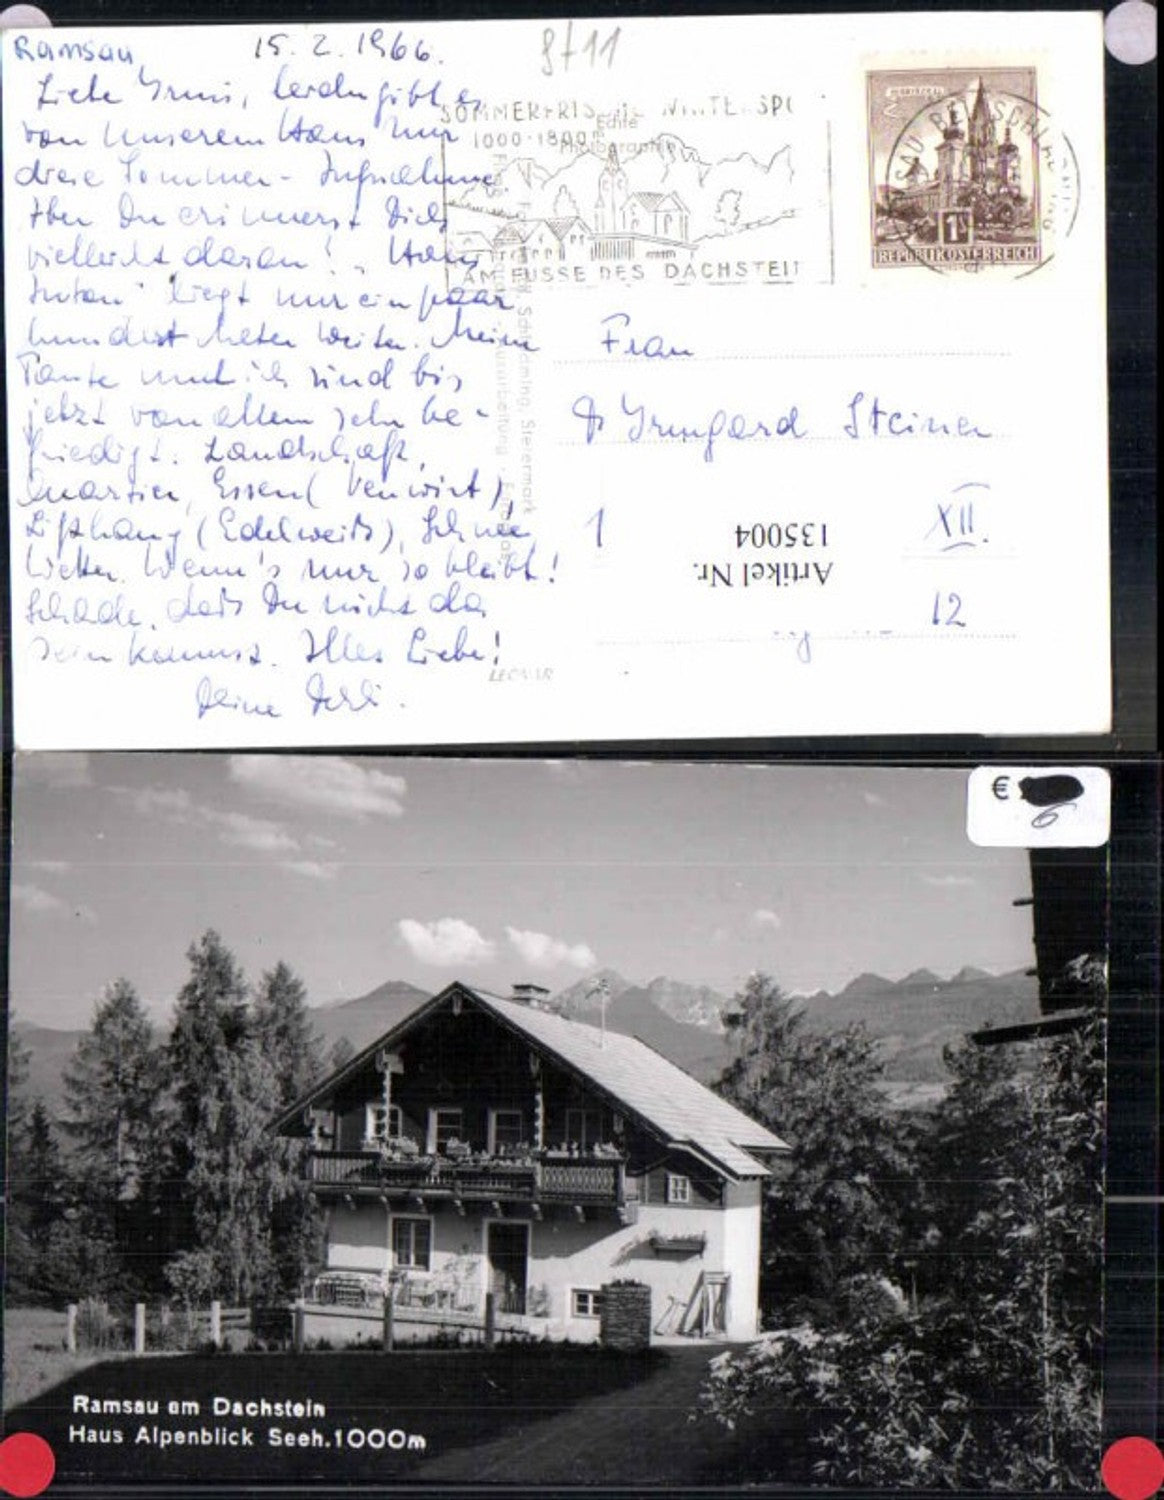 Ramsau, 15. 2. 1966.
8711
Liebe Irmi, leider gibt es
von unserem Haus nur
diese Sommer-Aufnahme
Aber Du erinnerst Dich
vielleicht daran! "Haus
liegt nur ein paar
hundert Meter weiter. Meine
Tante und ich sind bis
jetzt von allem sehr be-
friedigt. Landschaft,
Quartier, Essen (Venwirt),
Lifthang (Edelweiß), Schnee
Wetter. Wenn's nur so bleibt!
Schade, daß Du nicht da
sein kannst. Alles Liebe!
Deine
SOMMERFRISCHE WINTERSPO
1000-1800m
Echte
Photographie
AM FUSSE DES DACHSTEIN
MARIAZELL
1
REPUBLIK ÖSTERREICH
Schladming, Steiermark
Frau
Dr Irmgard Steiner
1
XII.
12
Artikel Nr.
135004
€ 6
Ramsau am Dachstein
Haus Alpenblick Seeh.1000m